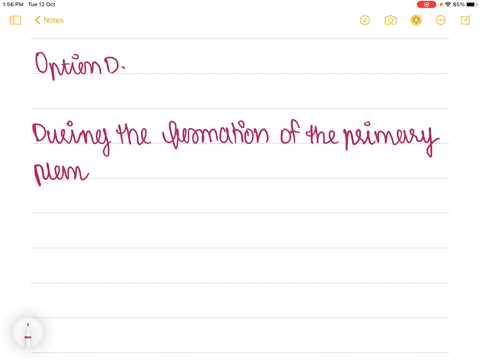 1:56 PM Tue 12 Oct 85%
Notes
Option D.
During the formation of the primary
plem